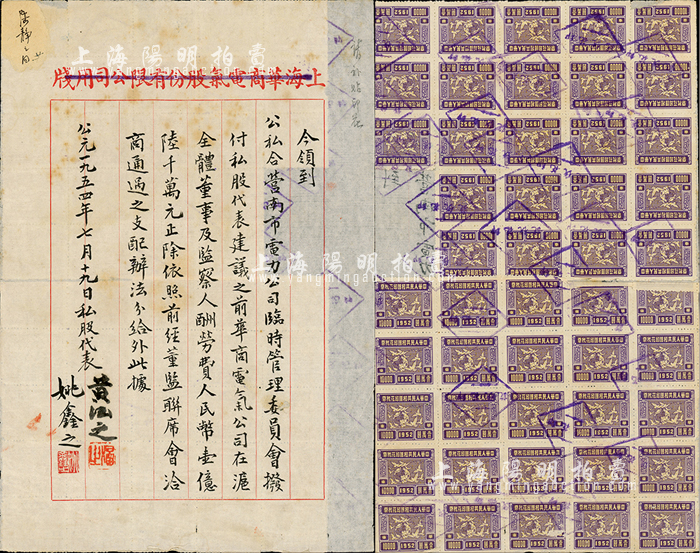 上海華商電氣股份有限公司用牋
今領到
公私合營南市電力公司臨時管理委員會撥
付私股代表建議之前華商電氣公司在滬
全體董事及監察人酬勞費人民幣壹億
陸千萬元正除依照前經董監聯席會洽
商通過之支配辦法分給外此據
公元一九五四年七月十九日私股代表
姚鑫之
上海陽明拍賣
www.yangmingauction.com
中華人民共和國印花稅票
1952
10000
壹萬圓